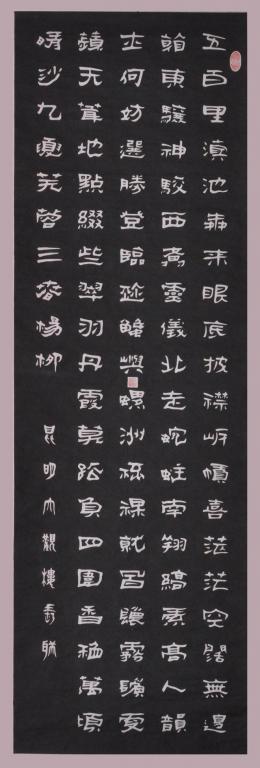 五百里滇池奔来眼底披襟岸幘喜茫茫空闊無邊
看東驤神駿西翥靈儀北走蜿蜒南翔縞素高人韻
士何妨選勝登臨趁蟹嶼螺洲梳裹就風鬟霧鬢更
蘋天葦地點綴些翠羽丹霞莫孤負四圍香稻萬頃
晴沙九夏芙蓉三春楊柳
昆明大觀樓長聯